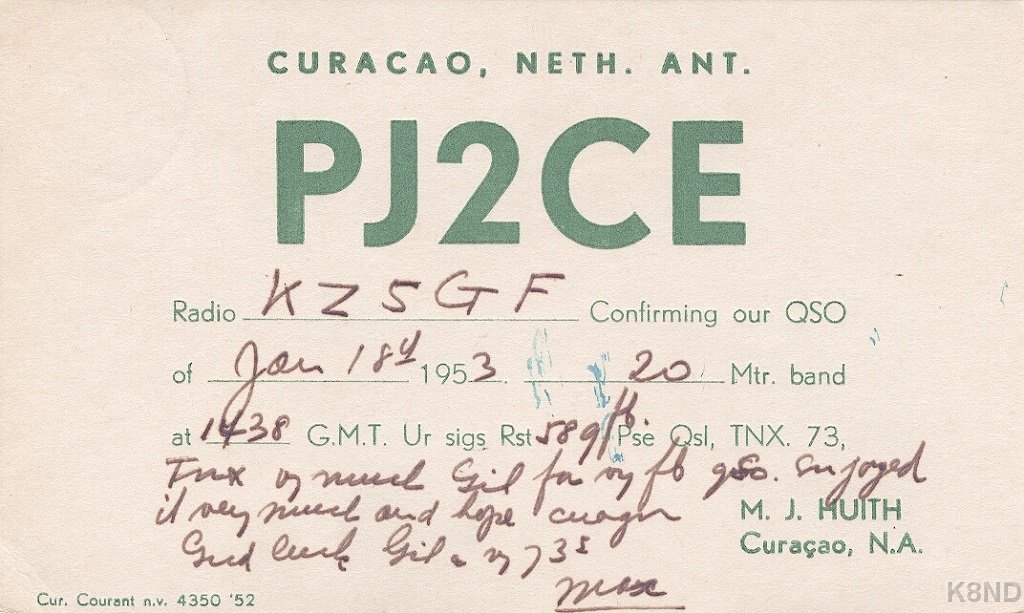 CURACAO, NETH. ANT.
PJ2CE
Radio KZ5GF Confirming our QSO
of Jan 18th 1953. 20 Mtr. band
at 1438 G.M.T. Ur sigs Rst 589 fb. Pse Qsl, TNX. 73,
Tnx vy much Gil for vy fb qso. Enjoyed
it very much and hope cuagn
M. J. HUITH
Gud luck Gil & vy 73s
Curaçao, N.A.
Max
Cur. Courant n.v. 4350 '52
K8ND